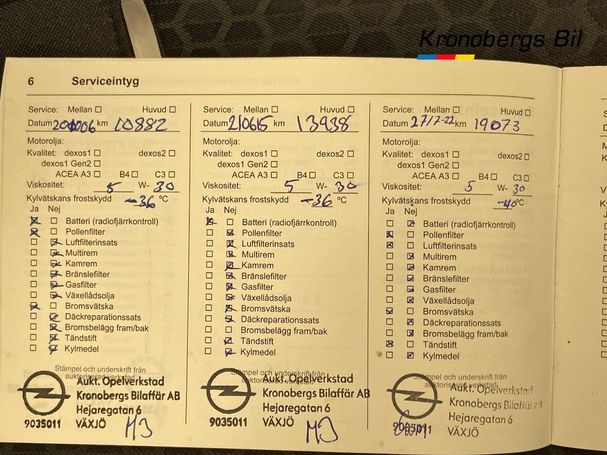 Kronobergs Bil
6 Serviceintyg
Service: Mellan Huvud
Datum 201006 km 10882
Motorolja:
Kvalitet: dexos1 dexos2
dexos1 Gen2
ACEA A3 B4 C3
Viskositet: 5 W- 30
Kylvätskans frostskydd -36 °C
Ja Nej
Batteri (radiofjärrkontroll)
Pollenfilter
Luftfilterinsats
Multirem
Kamrem
Bränslefilter
Gasfilter
Växellådsolja
Bromsvätska
Däckreparationssats
Bromsbelägg fram/bak
Tändstift
Kylmedel
Stämpel och underskrift från
Aukt. Opelverkstad
Kronobergs Bilaffär AB
Hejaregatan 6
9035011 VÄXJÖ MJ
Service: Mellan Huvud
Datum 210615 km 13938
Motorolja:
Kvalitet: dexos1 dexos2
dexos1 Gen2
ACEA A3 B4 C3
Viskositet: 5 W- 30
Kylvätskans frostskydd -36 °C
Ja Nej
Batteri (radiofjärrkontroll)
Pollenfilter
Luftfilterinsats
Multirem
Kamrem
Bränslefilter
Gasfilter
Växellådsolja
Bromsvätska
Däckreparationssats
Bromsbelägg fram/bak
Tändstift
Kylmedel
Stämpel och underskrift från
Aukt. Opelverkstad
Kronobergs Bilaffär AB
Hejaregatan 6
9035011 VÄXJÖ MJ
Service: Mellan Huvud
Datum 27/7-22 km 19073
Motorolja:
Kvalitet: dexos1 dexos2
dexos1 Gen2
ACEA A3 B4 C3
Viskositet: 5 W- 30
Kylvätskans frostskydd -40 °C
Ja Nej
Batteri (radiofjärrkontroll)
Pollenfilter
Luftfilterinsats
Multirem
Kamrem
Bränslefilter
Gasfilter
Växellådsolja
Bromsvätska
Däckreparationssats
Bromsbelägg fram/bak
Tändstift
Kylmedel
Stämpel och underskrift från
Aukt. Opelverkstad
Kronobergs Bilaffär
Hejaregatan 6
9035011 VÄXJÖ